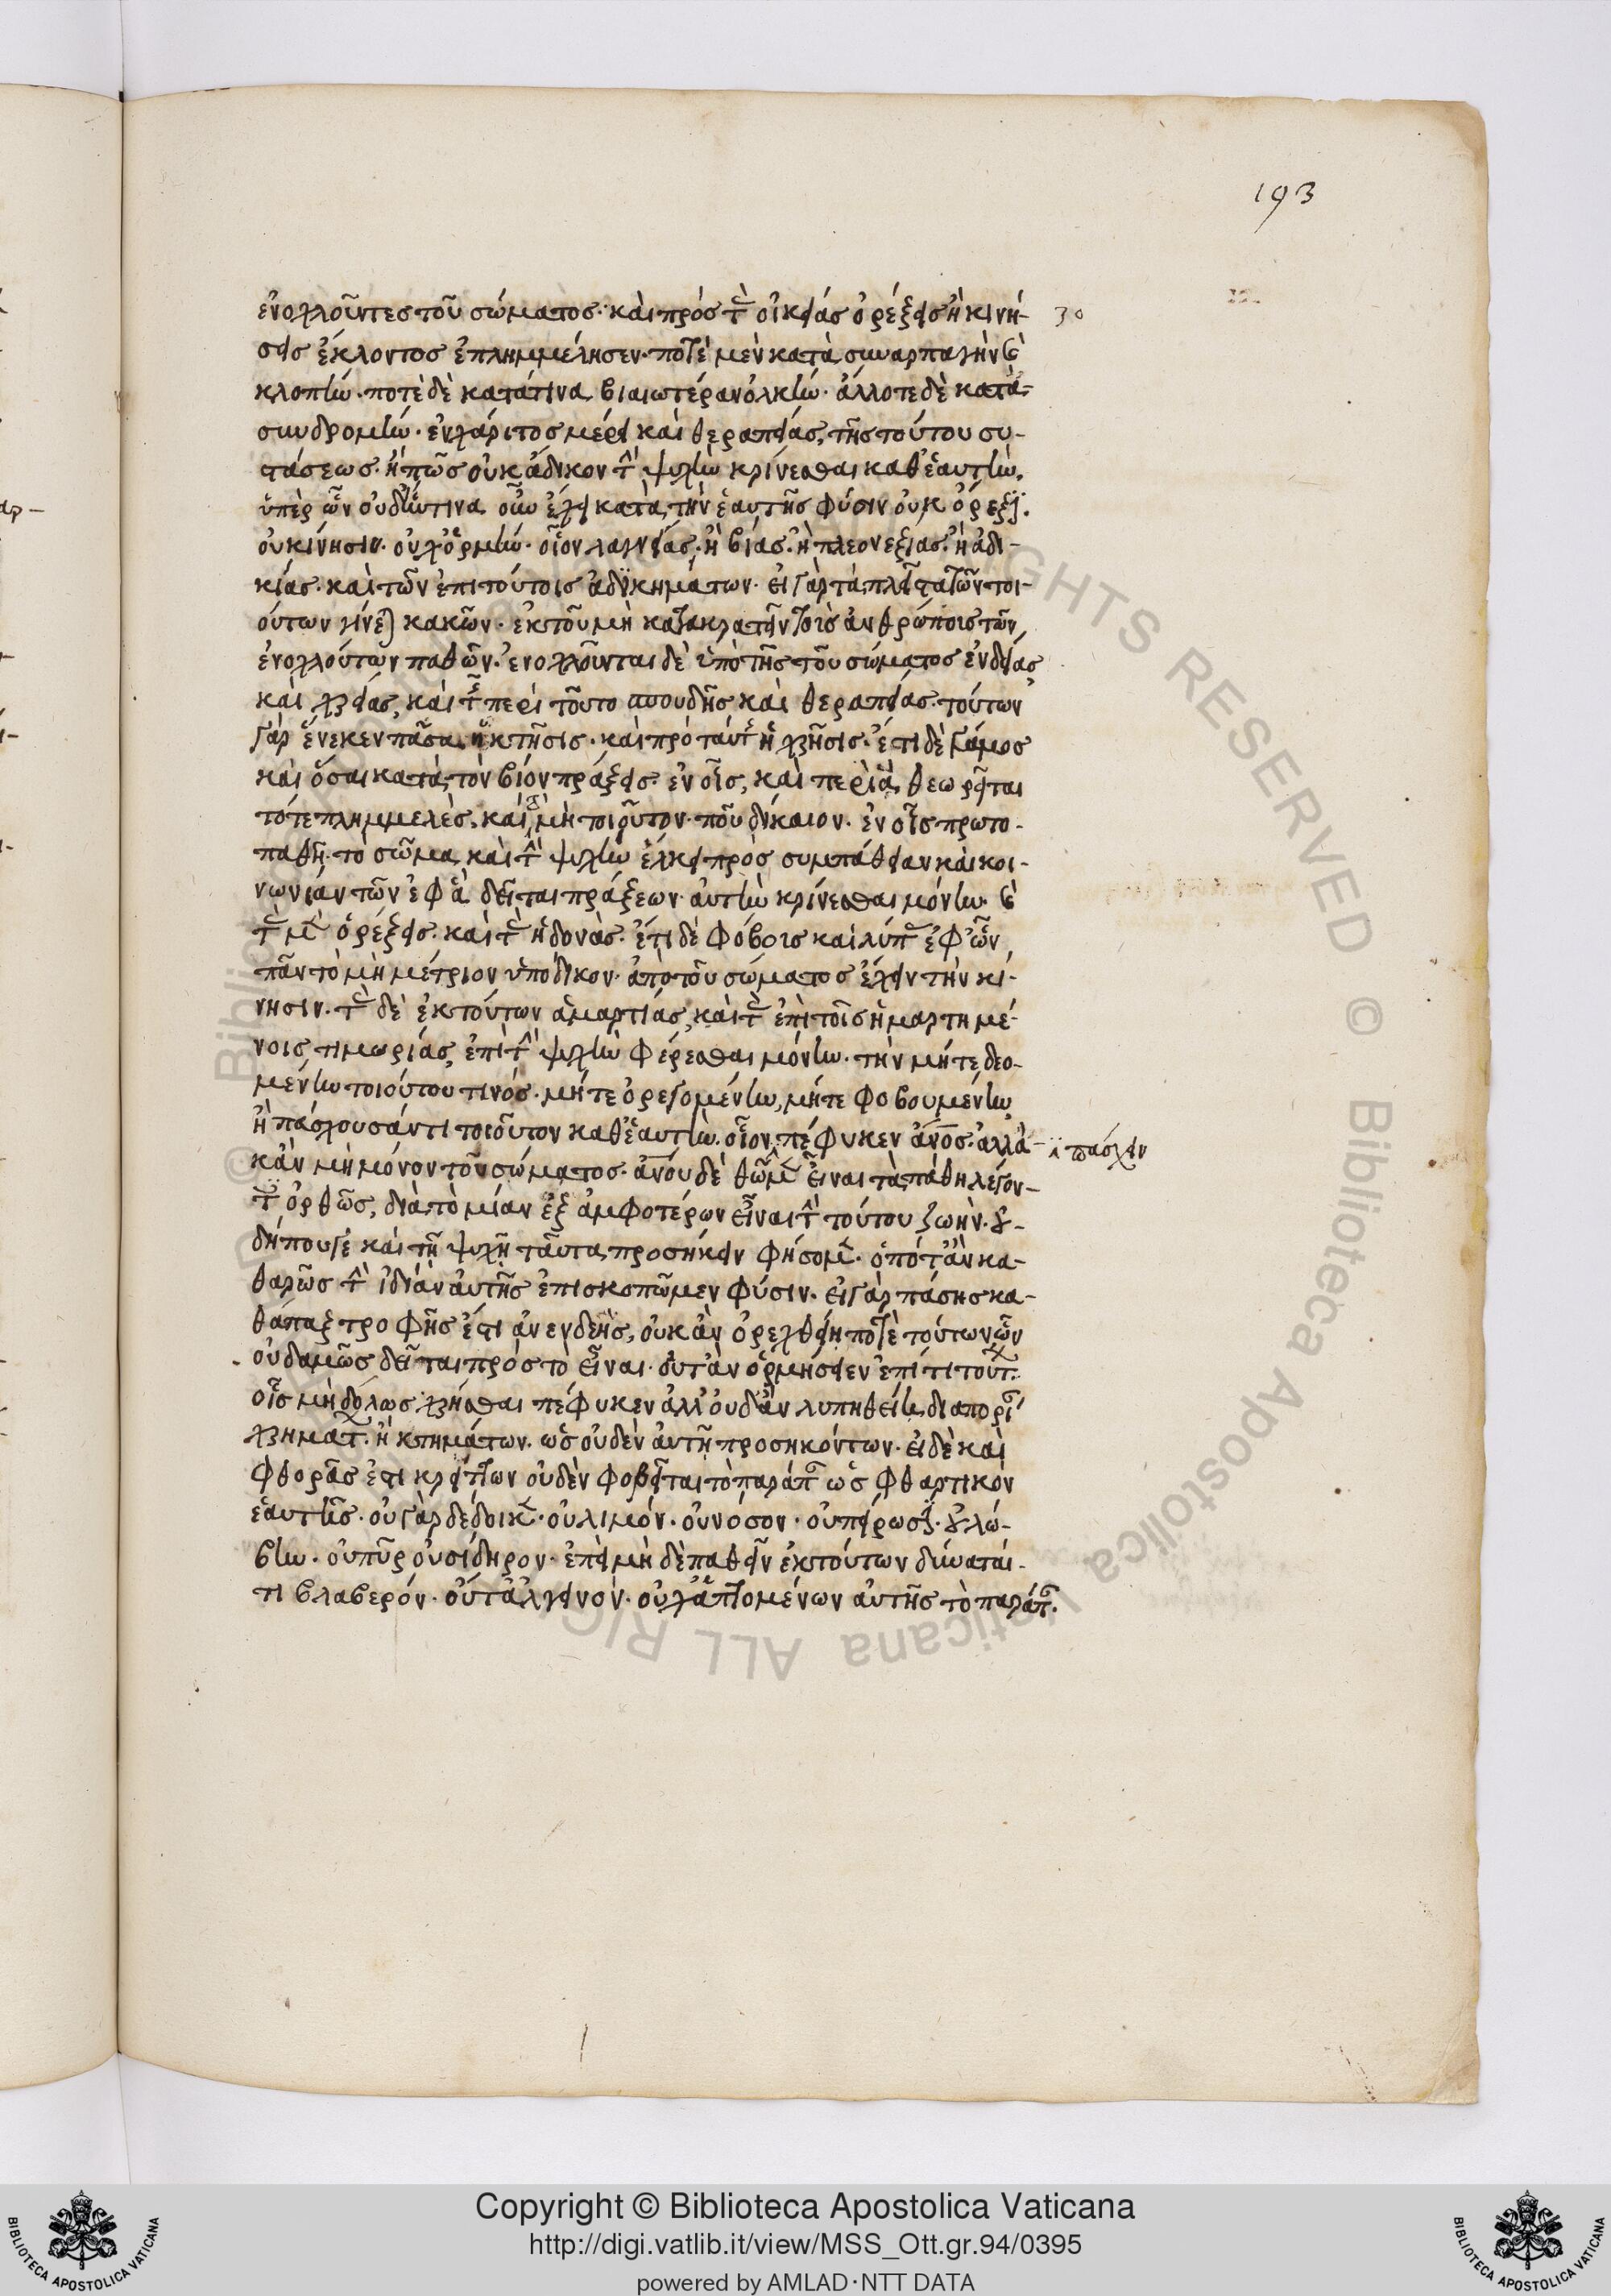 193
ἐνοχλοῦντος τοῦ σώματος· καὶ πρὸς τὰς οἰκείας ὀρέξεις ἢ κινή-
30
σεις ἕλκοντος ἐπλημμέλησεν· ποτὲ μὲν κατὰ συναρπαγὴν καὶ
κλοπὴν· ποτὲ δὲ κατά τινα βιαιωτέραν ὁλκήν· ἄλλοτε δὲ κατὰ
συνδρομὴν· ἐν χάριτος μέρει καὶ θεραπείας, τῆς τούτου συ-
στάσεως· ἢ πῶς οὐκ ἄδικον τὴν ψυχὴν κρίνεσθαι καθ' ἑαυτὴν,
ὑπὲρ ὧν οὐδ' ἥντινα οὖν ἔχει κατὰ τὴν ἑαυτῆς φύσιν οὐκ ὄρεξιν·
οὐ κίνησιν· οὐχ ὁρμὴν· οἷον λαγνείας· ἢ βίας· ἢ πλεονεξίας· ἢ ἀδι-
κίας· καὶ τῶν ἐπὶ τούτοις ἀδικημάτων· εἰ γὰρ τὰ πλεῖστα τῶν τοι-
ούτων γίνεται κακῶν· ἐκ τοῦ μὴ κατακρατεῖν τοῖς ἀνθρώποις τῶν
ἐνοχλούντων παθῶν· ἐνοχλοῦνται δὲ ὑπὸ τῆς τοῦ σώματος ἐνδείας
καὶ χρείας, καὶ τῆς περὶ τοῦτο σπουδῆς καὶ θεραπείας· τούτων
γὰρ ἕνεκεν πᾶσα ἡ κτῆσις· καὶ πρὸ ταύτης ἡ χρῆσις· ἔτι δὲ γάμος
καὶ ὅσαι κατὰ τὸν βίον πράξεις· ἐν οἷς, καὶ περὶ ἃ θεωρεῖται
τό τε πλημμελὲς, καὶ τὸ μὴ τοιοῦτον· ποῦ δίκαιον· ἐν οἷς πρωτο-
παθεῖ τὸ σῶμα καὶ τὴν ψυχὴν ἕλκει πρὸς συμπάθειαν καὶ κοι-
νωνίαν τῶν ἐφ' ἃ δεῖται πράξεων· αὐτὴν κρίνεσθαι μόνην· καὶ
τὰς μὲν ὀρέξεις· καὶ τὰς ἡδονὰς· ἔτι δὲ φόβους καὶ λύπας ἐφ' ὧν
πᾶν τὸ μὴ μέτριον ὑπόδικον· ἀπὸ τοῦ σώματος ἔχειν τὴν κί-
νησιν· τὰς δὲ ἐκ τούτων ἁμαρτίας, καὶ τὰς ἐπὶ τοῖς ἡμαρτημέ-
νοις τιμωρίας, ἐπὶ τὴν ψυχὴν φέρεσθαι μόνην· τὴν μήτε δεο-
μένην τοιούτου τινός· μήτε ὀρεγομένην, μήτε φοβουμένην
ἢ πάσχουσάν τι τοιοῦτον καθ' ἑαυτὴν· οἷον πέφυκεν ἄνος· ἀλλὰ
πάσχειν
κἂν μὴ μόνου τοῦ σώματος· ἀνου δὲ θῶμεν εἶναι τὰ πάθη λέγον-
τες ὀρθῶς, διὰ τὸ μίαν ἐξ ἀμφοτέρων εἶναι τὴν τούτου ζωήν· οὐ
δήπου γε καὶ τῇ ψυχῇ ταῦτα προσήκειν φήσομεν· ὁπόταν κα-
θαρῶς τὴν ἰδίαν αὐτῆς ἐπισκοπῶμεν φύσιν· εἰ γὰρ πάσης κα-
θάπαξ τροφῆς ἐστι ἀνενδεὴς, οὐκ ἂν ὀρεχθείη ποτὲ τούτων ὧν
οὐδαμῶς δεῖται πρὸς τὸ εἶναι· οὔτ' ἂν ὁρμήσειεν ἐπί τι τούτων
οἷς μηδ' ὅλως χρῆσθαι πέφυκεν ἀλλ' οὐδ' ἂν λυπηθείη δι' ἀπορίαν
χρημάτων· ἢ κτημάτων· ὡς οὐδὲν αὐτῇ προσηκόντων· εἰ δὲ καὶ
φθορᾶς ἐστι κρείττων οὐδὲν φοβεῖται τὸ παράπαν ὡς φθαρτικὸν
ἑαυτῆς· οὐ γὰρ δέδοικεν· οὐ λιμόν· οὐ νόσον· οὐ πήρωσιν· οὐ λώ-
βην· οὐ πῦρ οὐ σίδηρον· ἐπεὶ μὴ δὲ παθεῖν ἐκ τούτων δύναταί
τι βλαβερόν· οὔτ' ἀλγεινόν· οὐχ ἁπτομένων αὐτῆς τὸ παράπαν·
Copyright © Biblioteca Apostolica Vaticana
http://digi.vatlib.it/view/MSS_Ott.gr.94/0395
powered by AMLAD·NTT DATA
BIBLIOTECA APOSTOLICA VATICANA
BIBLIOTECA APOSTOLICA VATICANA